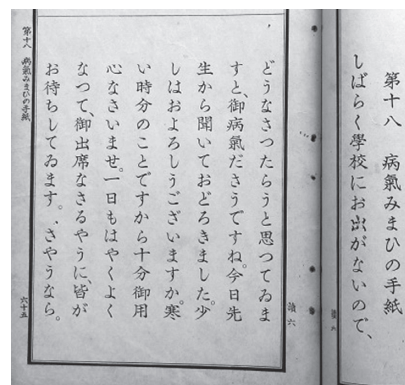 第十八　病氣みまひの手紙
しばらく學校にお出がないので、
讀六
どうなさつたらうと思つてゐま
すと、御病氣ださうですね。今日先
生から聞いておどろきました。少
しはおよろしうございますか。寒
い時分のことですから十分御用
心なさいませ。一日もはやくよく
なつて、御出席なさるやうに、皆が
お待ちしてゐます。さやうなら。
第十八　病氣みまひの手紙
六十五